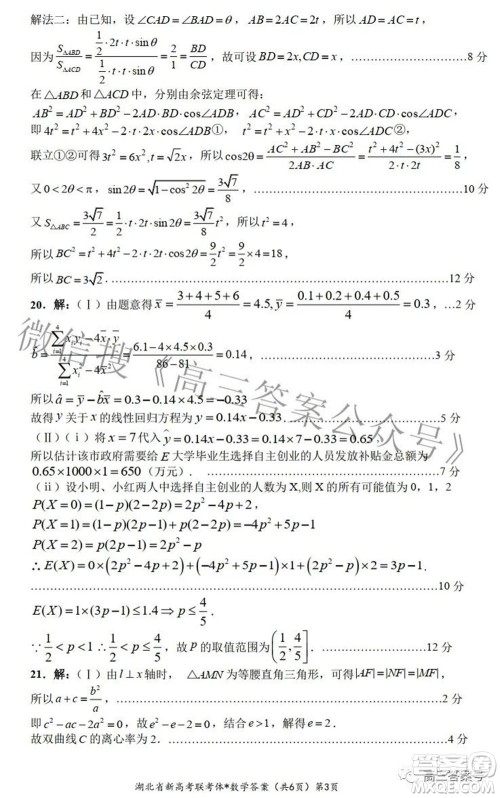 解法二：由已知，设∠CAD=∠BAD=θ，AB=2AC=2t，所以AD=AC=t，
因为 S△ABD/S△ACD = (1/2·2t·t·sinθ)/(1/2·t·t·sinθ) = 2/1 = BD/CD，故可设BD=2x,CD=x，……8分
在△ABD和△ACD中，分别由余弦定理可得：
AB²=AD²+BD²−2AD·BD·cos∠ADB，AC²=AD²+CD²−2AD·CD·cos∠ADC，
即4t²=t²+4x²−2·t·2x·cos∠ADB①，t²=t²+x²−2·t·x·cos∠ADC②，
联立①②可得3t²=6x²,t=√2x，所以cos2θ=(AC²+AB²−BC²)/(2AB·AC)=(t²+4t²−(3x)²)/(2·t·2t)=1/8，
又0<2θ<π，sin2θ=√(1−cos²2θ)=3√7/8，……10分
又S△ABC=3√7/2=1/2·t·2t·sin2θ=3√7/8·t²，所以t²=4，
所以BC²=t²+4t²−2·t·2t·cos2θ=9/2t²=9/2×4=18，
所以BC=3√2．……12分
20. 解：（Ⅰ）由题意得x̄=(3+4+5+6)/4=4.5,ȳ=(0.1+0.2+0.4+0.5)/4=0.3，…2分
b̂=(∑xᵢyᵢ−4x̄·ȳ)/(∑xᵢ²−4x̄²)=(6.1−4×4.5×0.3)/(86−81)=0.14，……3分
所以â=ȳ−b̂x̄=0.3−0.14×4.5=−0.33
故得y关于x的线性回归方程为ŷ=0.14x−0.33．……5分
（Ⅱ）（ⅰ）将x=7代入ŷ=0.14x−0.33=0.14×7−0.33=0.65，
所以估计该市政府需要给E大学毕业生选择自主创业的人员发放补贴金总额为
0.65×1000×1=650（万元）．……7分
（ⅱ）设小明、小红两人中选择自主创业的人数为X,则X的所有可能值为0，1，2
P(X=0)=(1−p)(2−2p)=2p²−4p+2，
P(X=1)=(1−p)(2p−1)+p(2−2p)=−4p²+5p−1
P(X=2)=p(2p−1)=2p²−p
∴E(X)=0×(2p²−4p+2)+(−4p²+5p−1)×1+(2p²−p)×2=3p−1．
……10分
E(X)=1×(3p−1)≤1.4⇒p≤4/5．
∵1/2<p<1∴1/2<p≤4/5，故p的取值范围为(1/2,4/5]．……12分
21. 解：（Ⅰ）由l⊥x轴时，△AMN为等腰直角三角形，可得|AF|=|NF|=|MF|，
所以a+c=b²/a，……2分
即c²−ac−2a²=0，故e²−e−2=0，结合e>1，解得e=2．
故双曲线C的离心率为2．……4分
湖北省新高考联考体*数学答案（共6页）第3页
微信搜《高三答案公众号》
高三答案号